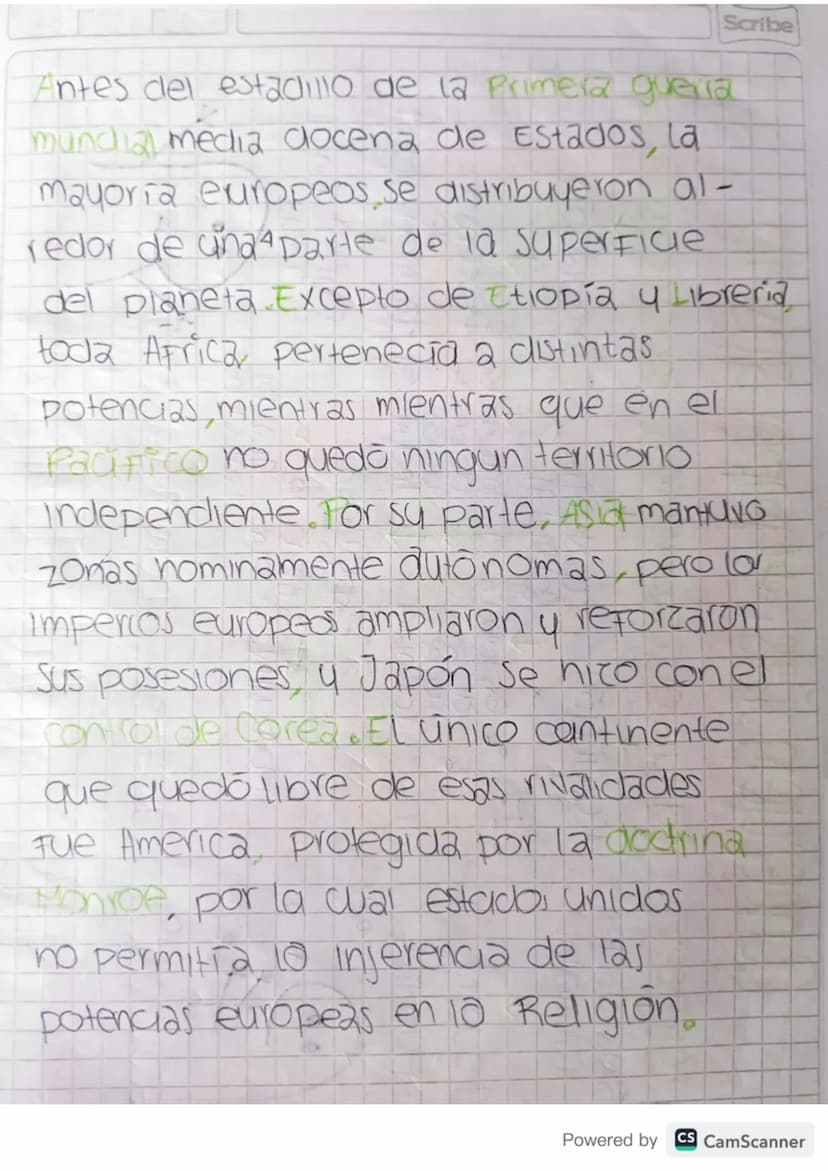 Scribe
Antes del estadillo de la Primera guerra
mundial media docena de Estados, la
mayoría europeos, se distribuyeron al-
rededor de una 4 parte de la superficie
del planeta. Excepto de Etiopía y Libreria,
toda Africa, pertenecia a distintas
potencias, mientras mientras que en el
Pacifico no quedó ningun territorio
independiente. Por su parte, Asia mantuvo
zonas nominamente autónomas, pero los
imperios europeos ampliaron y reforzaron
sus posesiones, y Japón se hizo con el
control de Corea. El único continente
que quedó libre de esas rivalidades
fue America, protegida por la doctrina
Monroe, por la cual estados unidos
no permitía lo injerencia de las
potencias europeas en lo Religión.
Powered by CS CamScanner